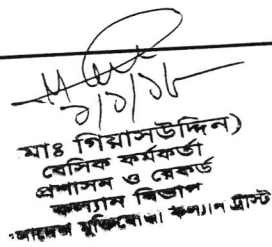 ১/১/১৮
মাঃ গিয়াসউদ্দিন)
বেসিক কর্মকর্তা
প্রশাসন ও রেকর্ড
কল্যান বিভাগ
মুক্তিযোদ্ধা কল্যান ট্রাস্ট